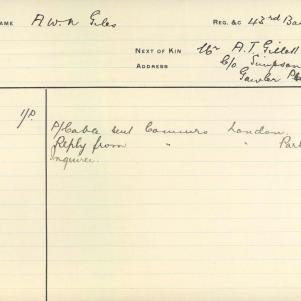 NAME A.W.N Giles REG. &C 43rd Ba
NEXT OF KIN Mr A.T. Gillett
ADDRESS C/o Simpson
Gawler Pl
1/P. P/Cable sent Commrs London.
Reply from " " Par
inquirer.